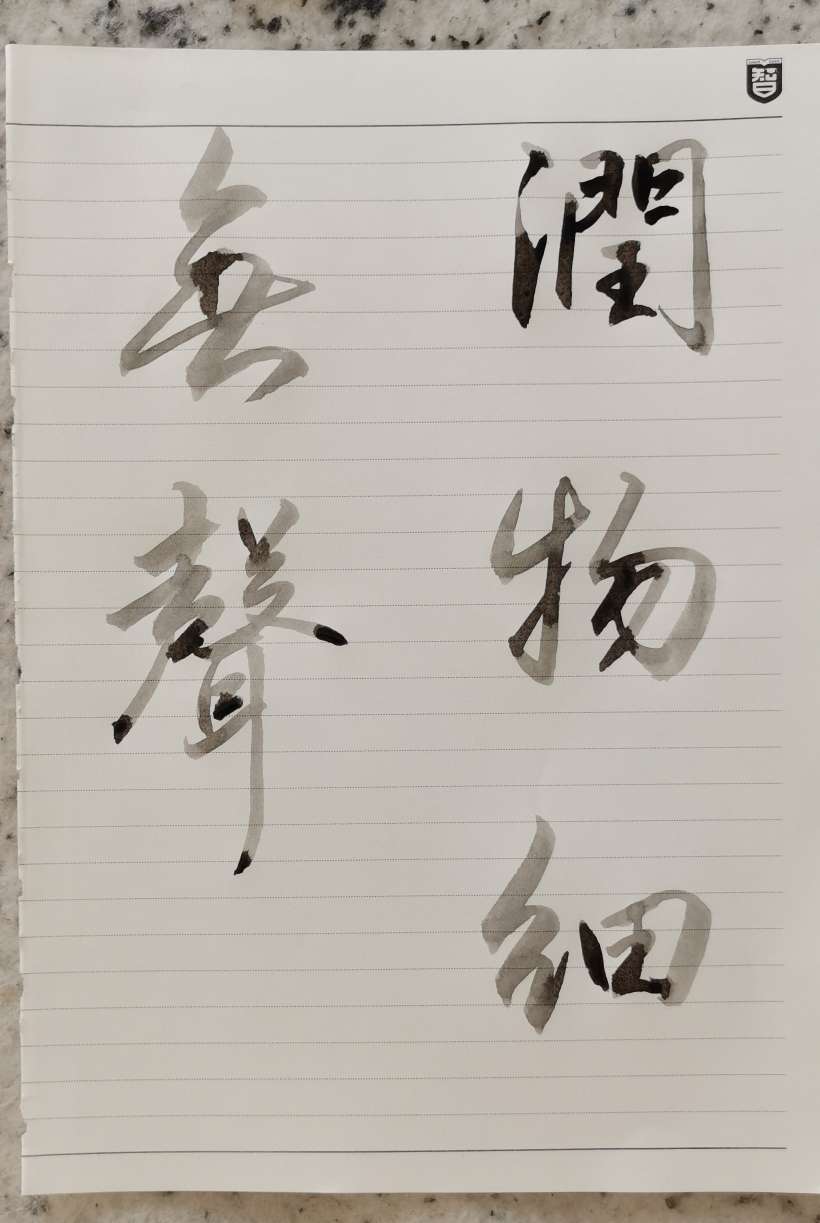 潤物細
無聲
智